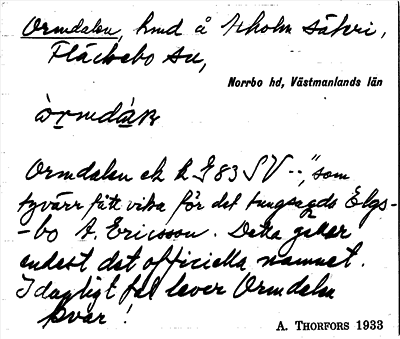 Ormdalen, hmd å Ekholm sätri,
Fläckebo sn,
Norrbo hd, Västmanlands län
Ormdalen ek k I 83 SV --", som
tyvärr fått vika för det tungsagda Elgs-
-bo A. Ericsson. Detta gäller
endast det officiella namnet.
I dagligt tal lever Ormdalen
kvar!
A. THORFORS 1933